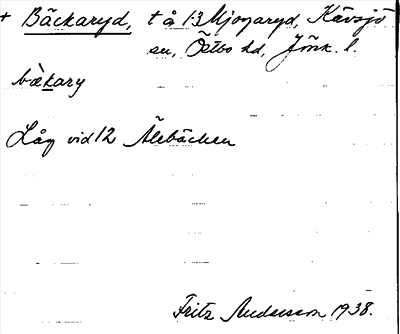 + Bäckaryd, t å 1:3 Mjogaryd, Kävsjö
sn, Östbo hd, Jönk. l.
bæ̀kary
Låg vid 12 Älebäcken
Fritz Andersson 1938.